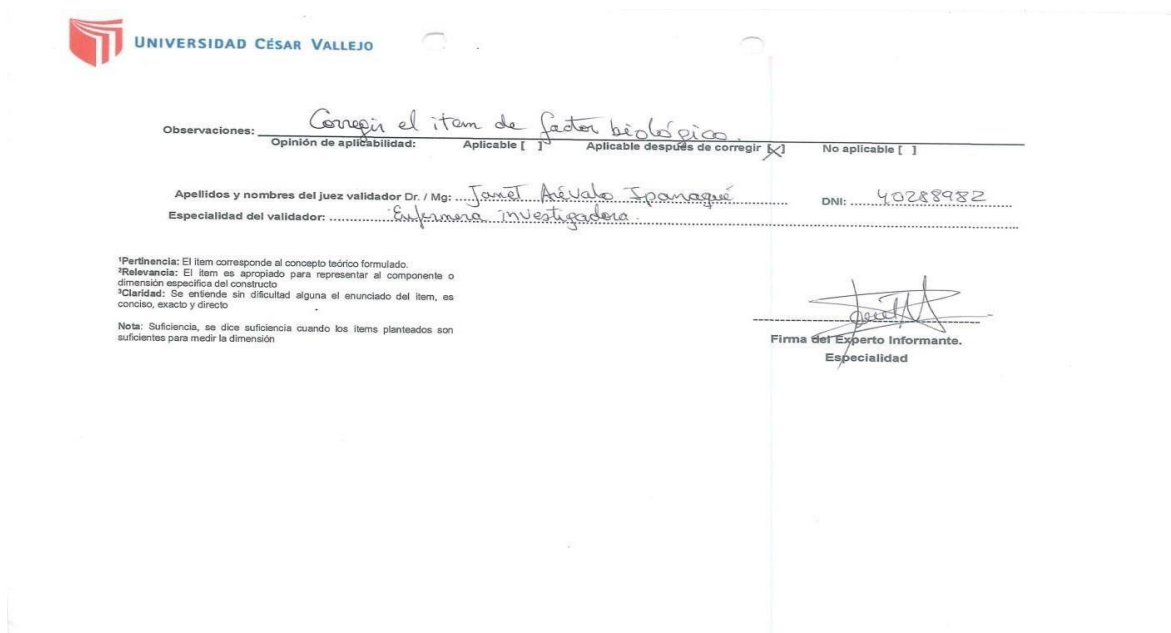 UNIVERSIDAD CÉSAR VALLEJO
Observaciones: Corregir el item de factor biológico.
Opinión de aplicabilidad: Aplicable [ ] Aplicable después de corregir [X] No aplicable [ ]
Apellidos y nombres del juez validador Dr. / Mg: .... Janet Arévalo Ipanaqué DNI: .... 40288982
Especialidad del validador: .... Enfermera investigadora.
¹Pertinencia: El item corresponde al concepto teórico formulado.
²Relevancia: El item es apropiado para representar al componente o
dimensión específica del constructo
³Claridad: Se entiende sin dificultad alguna el enunciado del item, es
conciso, exacto y directo
Nota: Suficiencia, se dice suficiencia cuando los items planteados son
suficientes para medir la dimensión
Firma del Experto Informante.
Especialidad